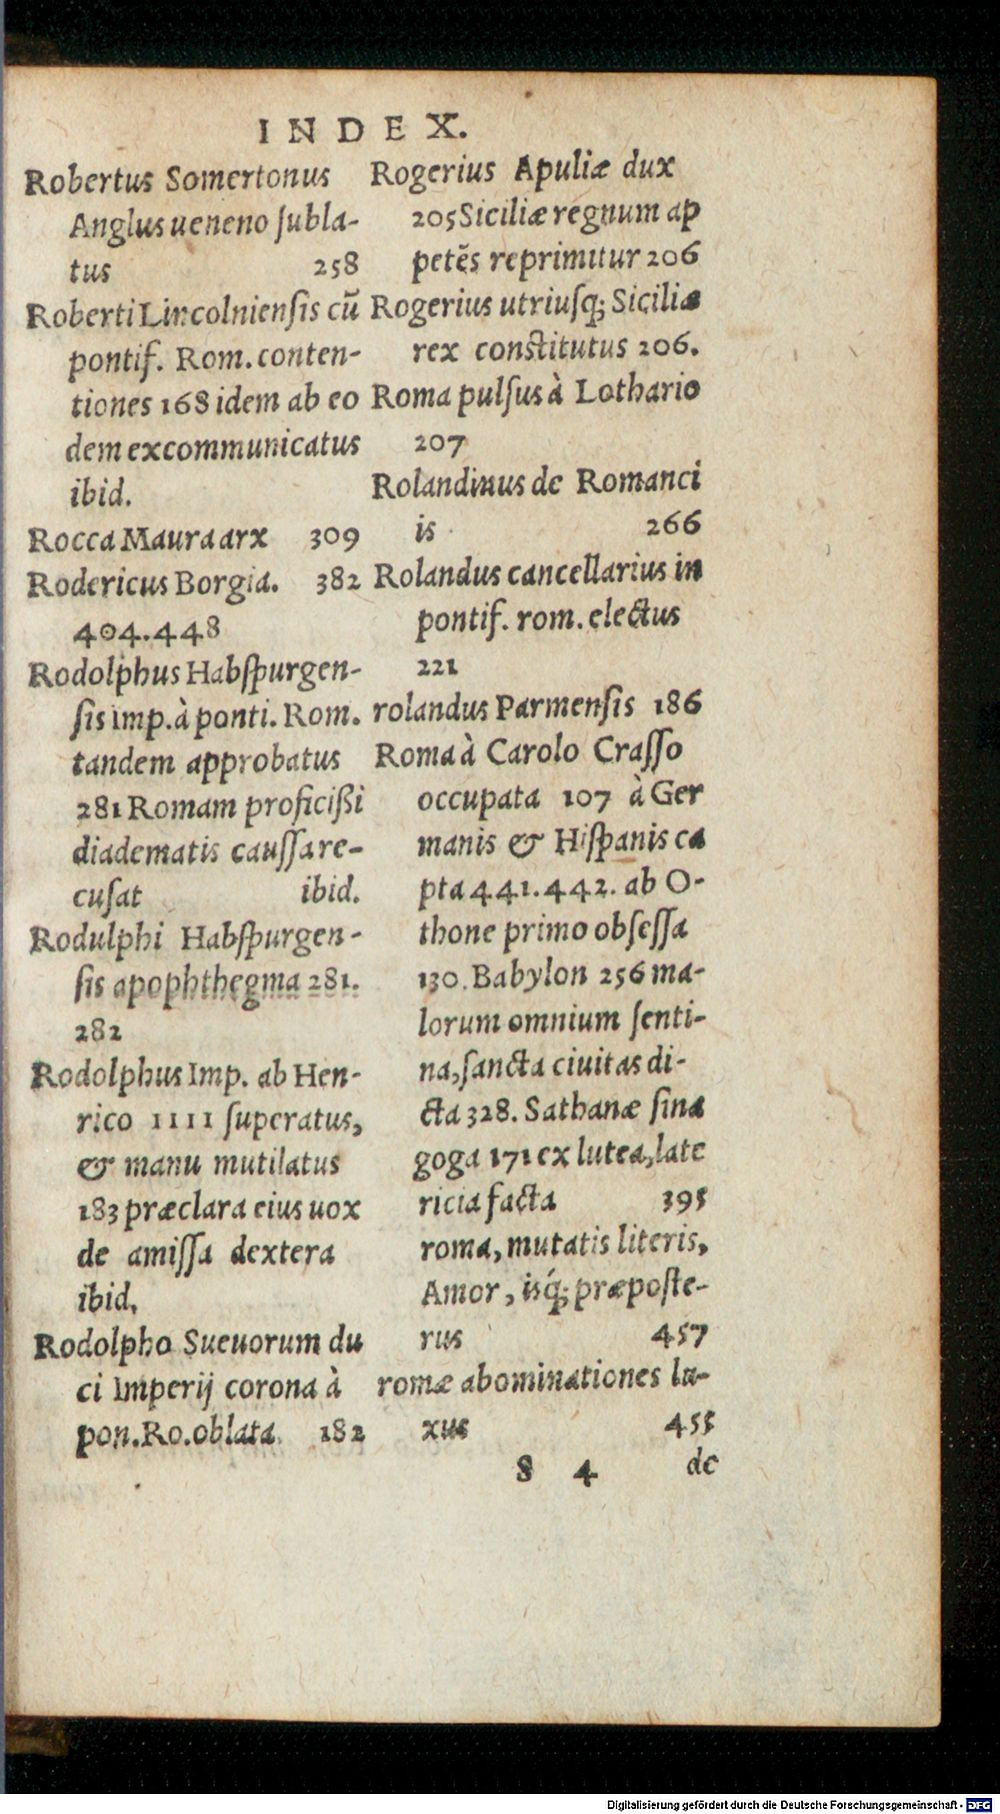 INDEX.
Robertus Somertonus
Anglus ueneno ſubla-
tus 258
Roberti Lincolnienſis cū
pontif. Rom. conten-
tiones 168 idem ab eo
dem excommunicatus
ibid.
Rocca Maura arx 309
Rodericus Borgia. 382
404.448
Rodolphus Habſpurgen-
ſis imp. à ponti. Rom.
tandem approbatus
281 Romam proficiſsi
diadematis cauſſa re-
cuſat ibid.
Rodulphi Habſpurgen-
ſis apophthegma 281.
282
Rodolphus Imp. ab Hen-
rico 1111 ſuperatus,
& manu mutilatus
183 præclara eius uox
de amiſſa dextera
ibid.
Rodolpho Sueuorum du
ci Imperij corona à
pon. Ro. oblata 182
Rogerius Apuliæ dux
205 Siciliæ regnum ap
petēs reprimitur 206
Rogerius utriuſq; Siciliæ
rex constitutus 206.
Roma pulſus à Lothario
207
Rolandinus de Romanci
is 266
Rolandus cancellarius in
pontif. rom. electus
221
rolandus Parmenſis 186
Roma à Carolo Craſſo
occupata 107 à Ger
manis & Hiſpanis ca
pta 441.442. ab O-
thone primo obſeſſa
130. Babylon 256 ma-
lorum omnium ſenti-
na, ſancta ciuitas di-
cta 328. Sathanæ ſina
goga 171 ex lutea, late
ricia facta 395
roma, mutatis literis,
Amor, isq́; præpoſte-
rus 457
romæ abominationes lu-
xus 455
8 4 de
Digitalisierung gefördert durch die Deutsche Forschungsgemeinschaft - DFG